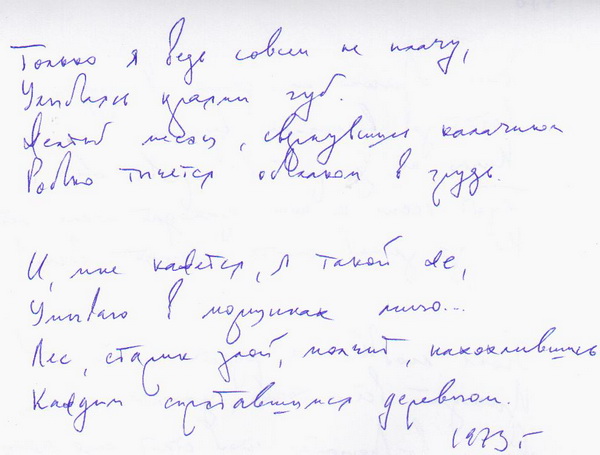 Только я ведь совсем не плачу,
Улыбаюсь краями губ.
Желтый месяц, свернувшись калачиком
Робко тычется облаком в грудь.
И, мне кажется, я такой же,
Умываю в морщинах лицо...
Лес, старик злой, молчит, нахохлившись
Каждым спрятавшимся деревцом.
1973 г